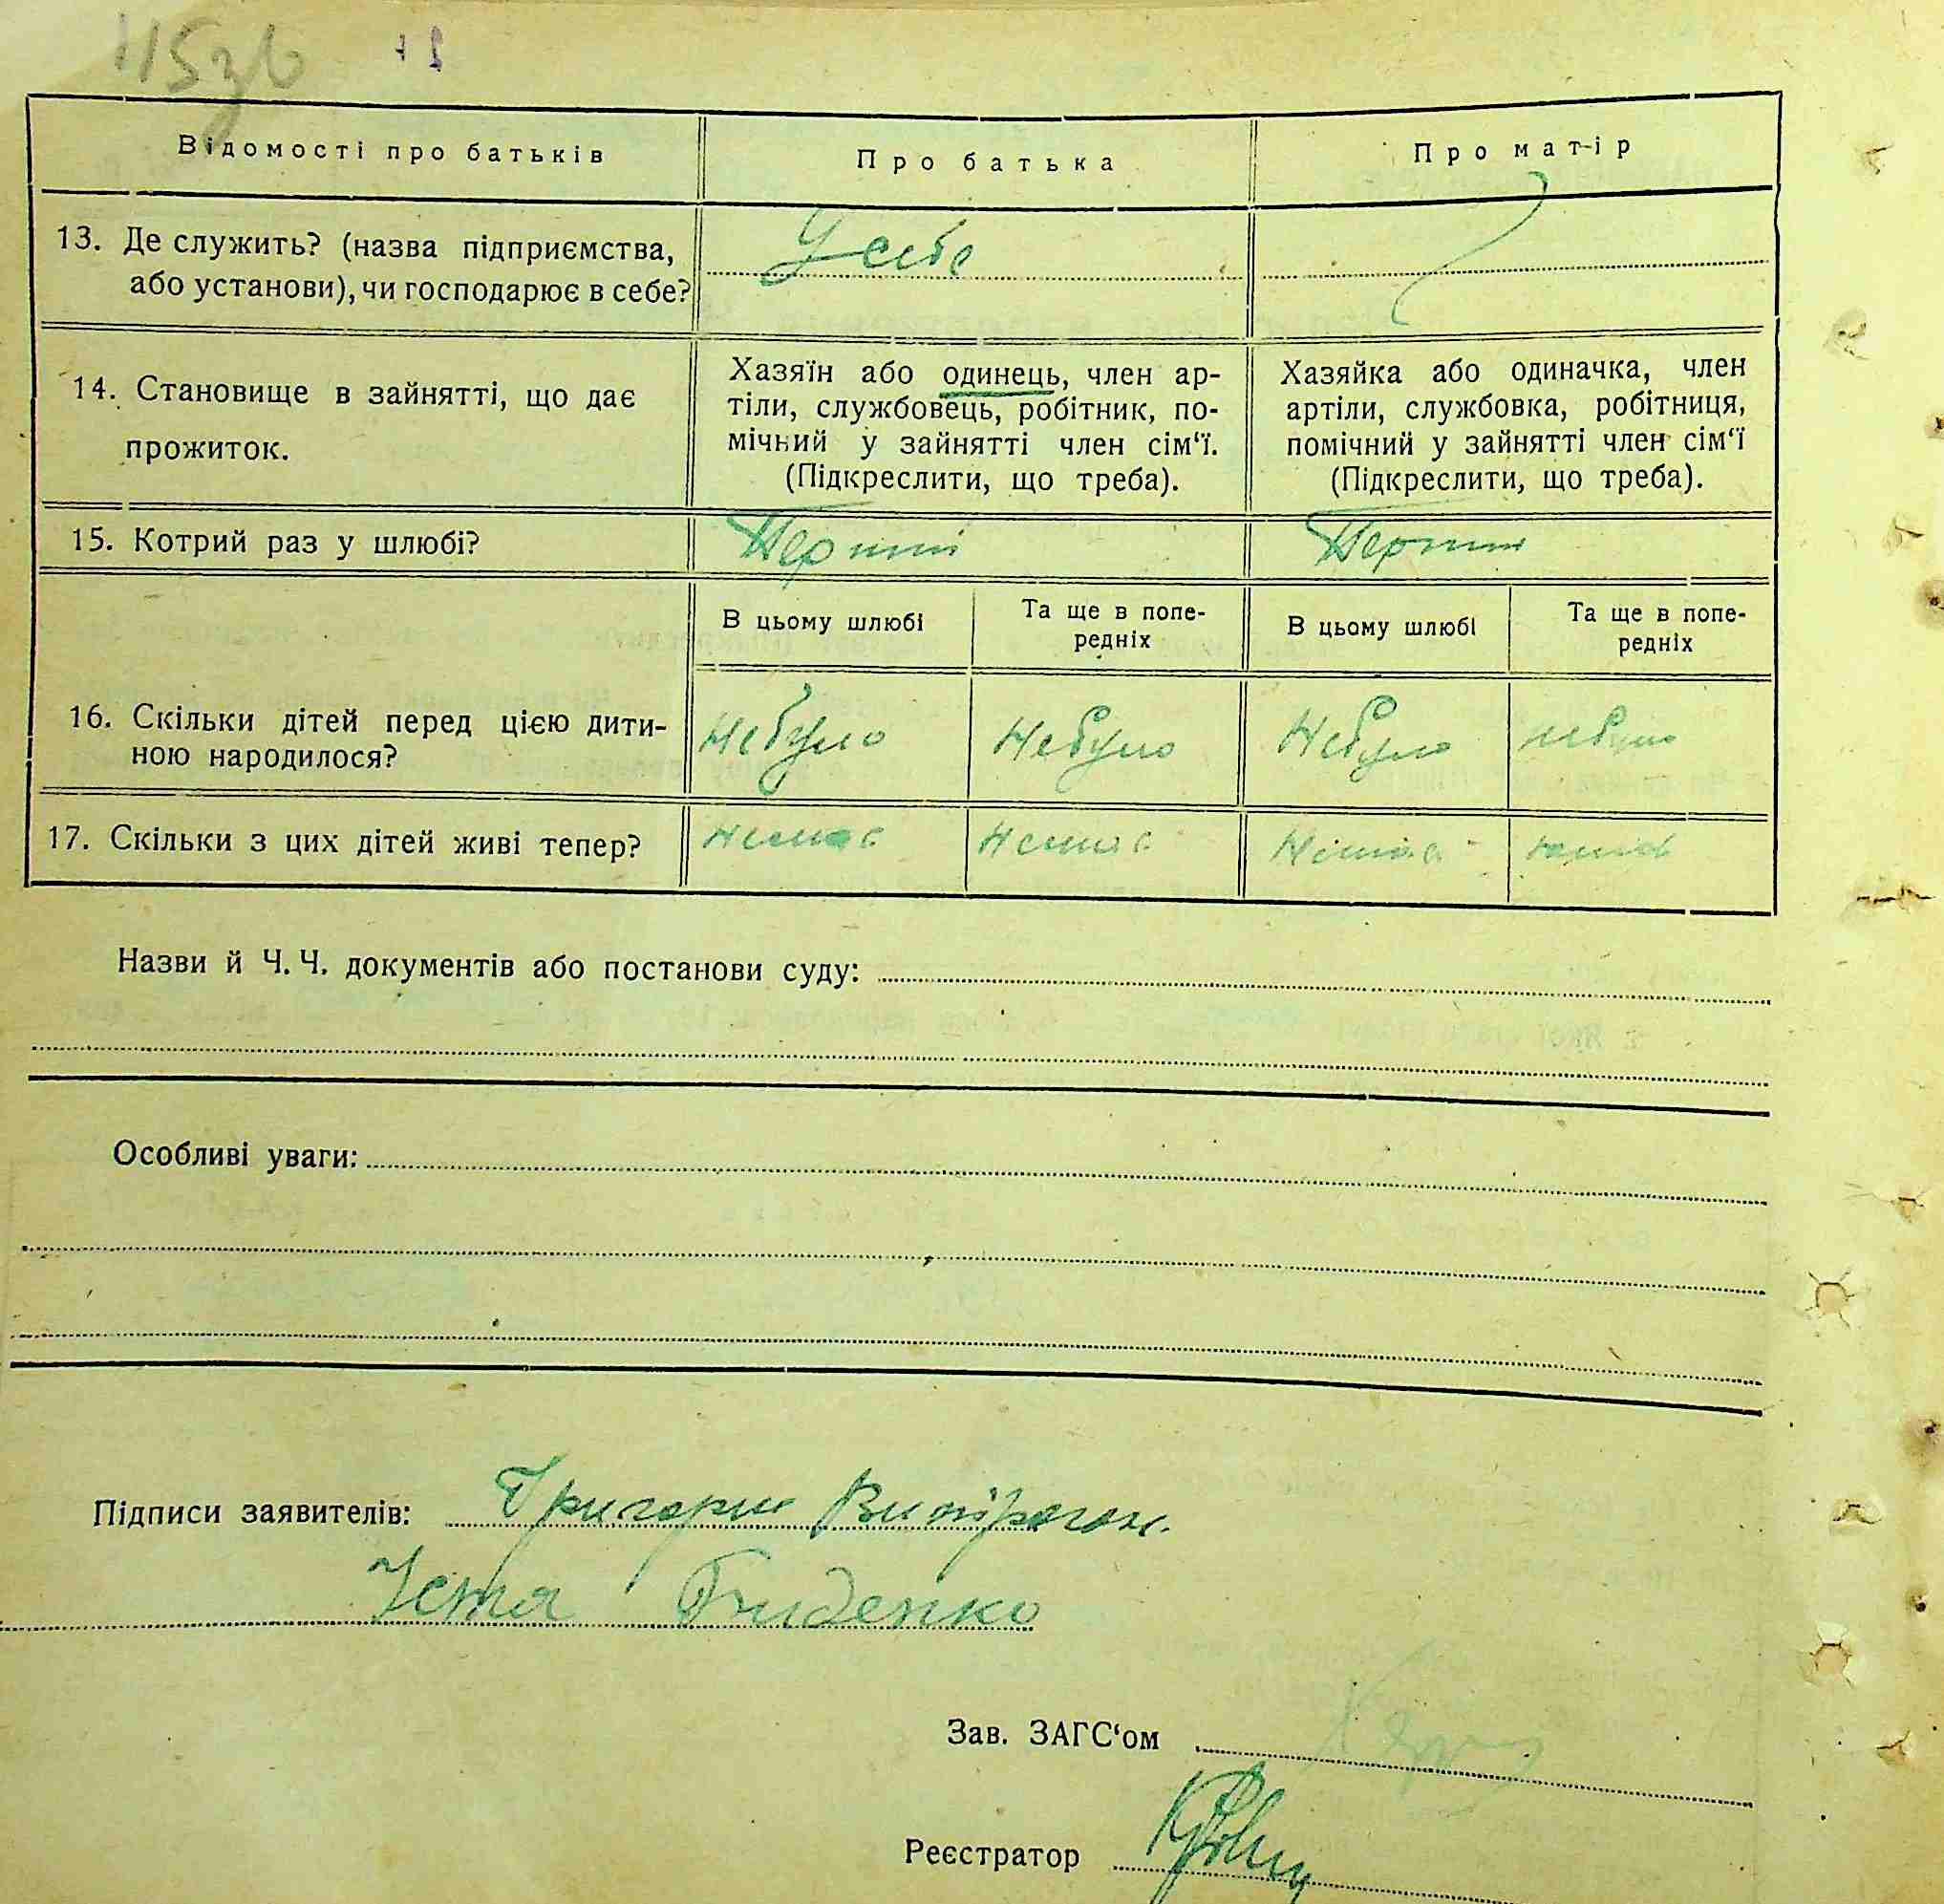 115зв
Відомості про батьків
Про батька
Про матір
13. Де служить? (назва підприємства,
або установи), чи господарює в себе?
У себе
14. Становище в зайнятті, що дає
прожиток.
Хазяїн або одинець, член ар-
тіли, службовець, робітник, по-
мічний у зайнятті член сім‘ї.
(Підкреслити, що треба).
Хазяйка або одиначка, член
артіли, службовка, робітниця,
помічний у зайнятті член сім‘ї
(Підкреслити, що треба).
15. Котрий раз у шлюбі?
Перший
Перший
В цьому шлюбі
Та ще в попе-
редніх
В цьому шлюбі
Та ще в попе-
редніх
16. Скільки дітей перед цією дити-
ною народилося?
Небуло
Небуло
Небуло
небуло
17. Скільки з цих дітей живі тепер?
Немає
Немає
Немає
Назви й Ч. Ч. документів або постанови суду:
Особливі уваги:
Підписи заявителів:
Григорий
Устя
Зав. ЗАГС‘ом
Реєстратор